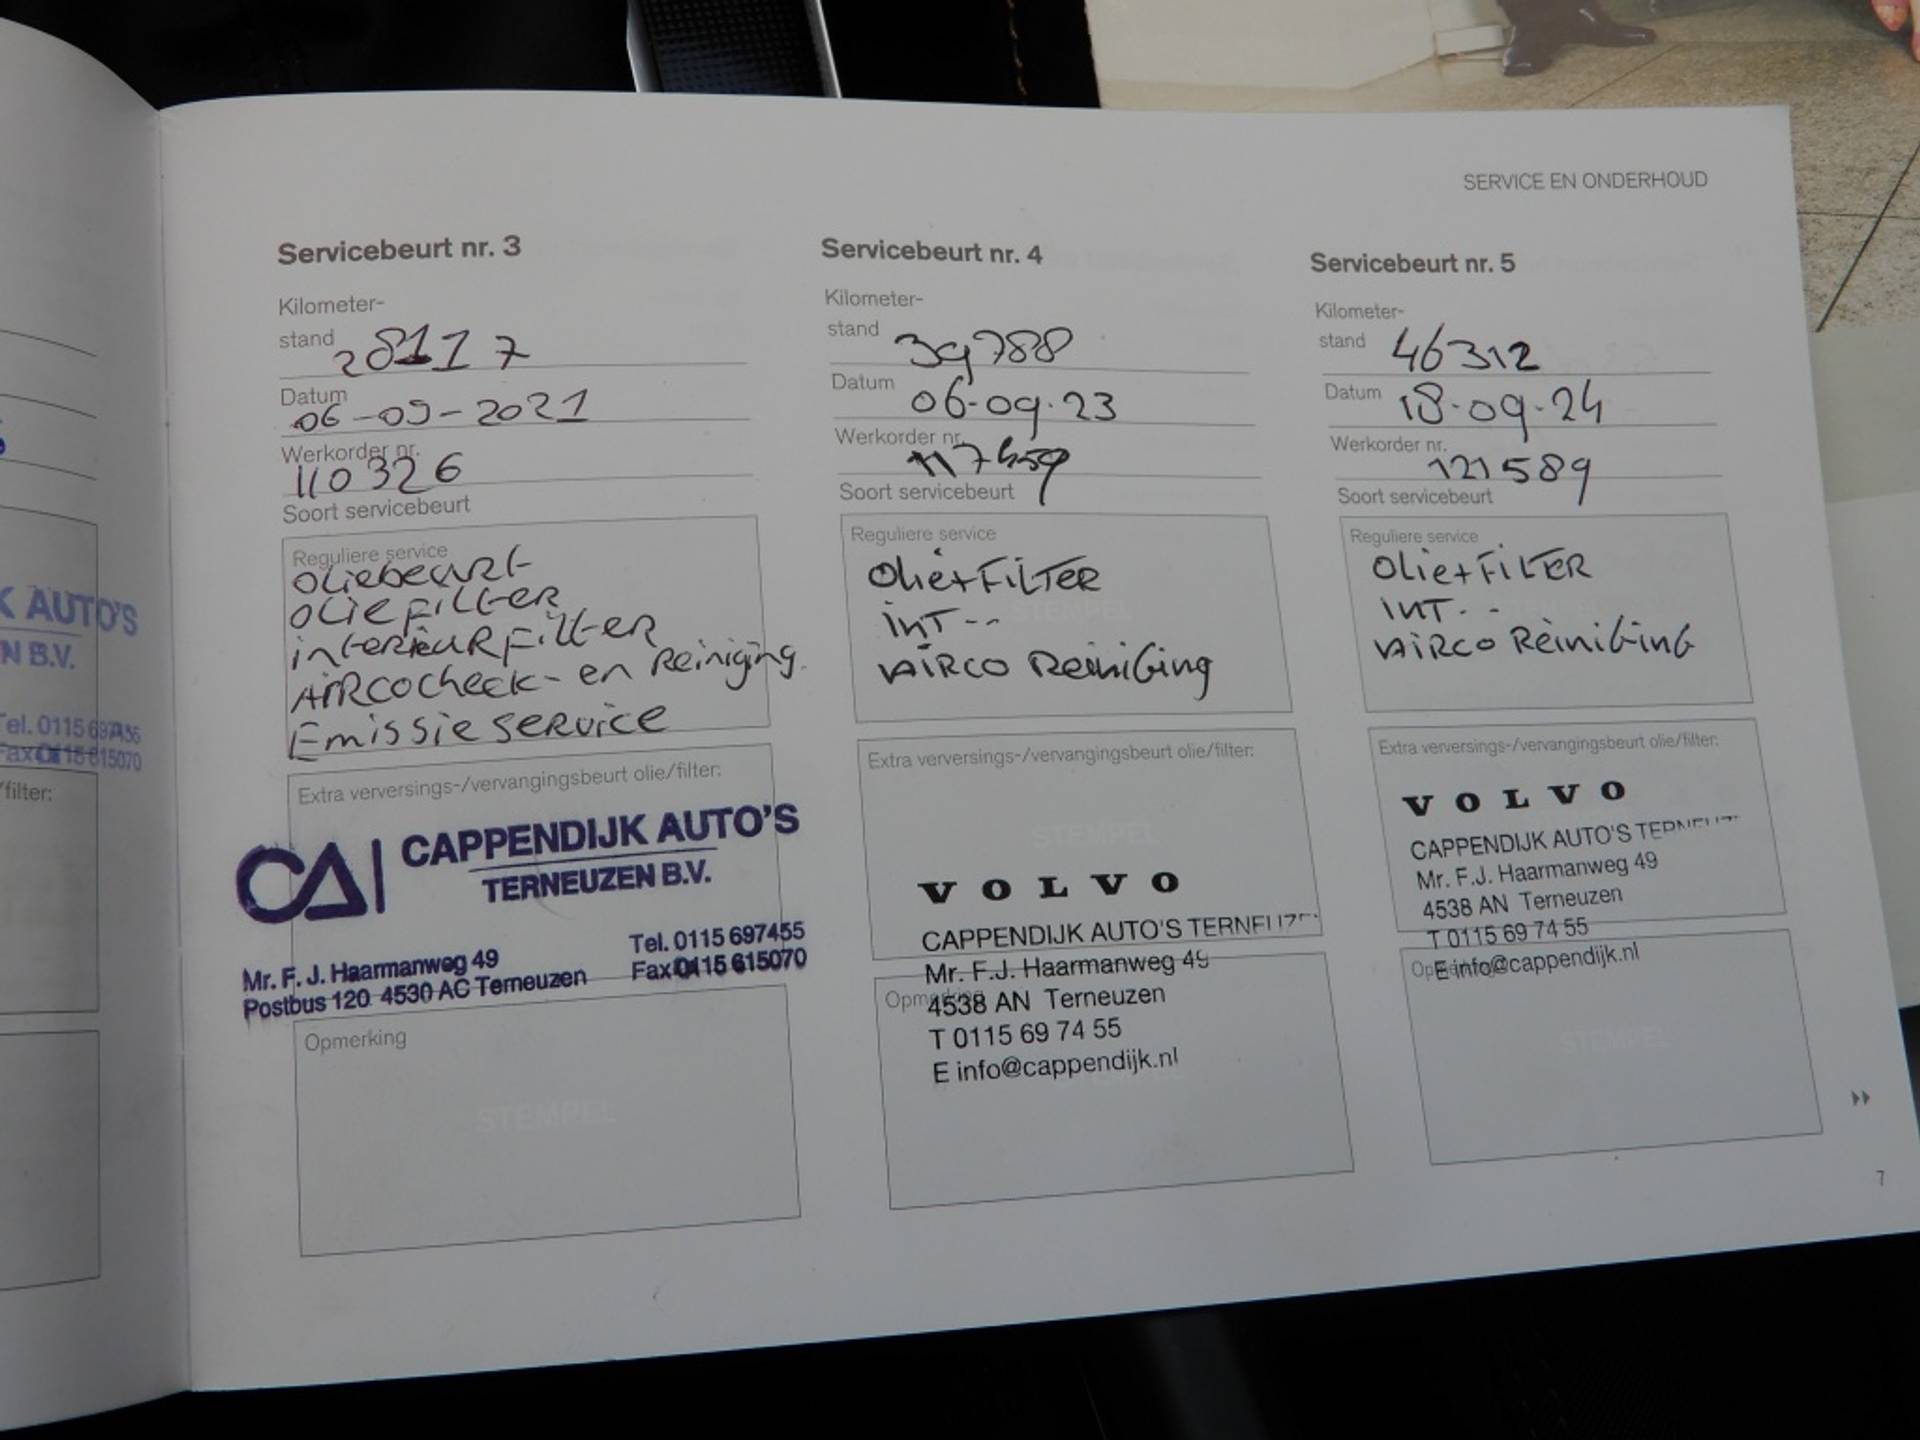 K AUTO'S
N B.V.
Tel. 0115 697455
Fax 0115 615070
/filter:
SERVICE EN ONDERHOUD
Servicebeurt nr. 3
Kilometer-
stand 28117
Datum 06-09-2021
Werkorder nr. 110326
Soort servicebeurt
Reguliere service
OLIEBEURT
OLIEFILTER
interieurFilter
AIRCOcheck- en Reiniging.
Emissie service
Extra verversings-/vervangingsbeurt olie/filter:
CA CAPPENDIJK AUTO'S
TERNEUZEN B.V.
Mr. F. J. Haarmanweg 49 Tel. 0115 697455
Postbus 120 4530 AC Terneuzen Fax 0115 615070
Opmerking
STEMPEL
Servicebeurt nr. 4
Kilometer-
stand 39788
Datum 06-09-23
Werkorder nr.
Soort servicebeurt
Reguliere service
Olie+FILTER
INT--
AIRCO Reiniging
STEMPEL
Extra verversings-/vervangingsbeurt olie/filter:
STEMPEL
VOLVO
CAPPENDIJK AUTO'S TERNEUZEN
Mr. F.J. Haarmanweg 49
Opmerking
4538 AN Terneuzen
T 0115 69 74 55
E info@cappendijk.nl
Servicebeurt nr. 5
Kilometer-
stand 46312
Datum 18-09-24
Werkorder nr. 121589
Soort servicebeurt
Reguliere service
Olie+FILTER
INT--
AIRCO Reiniging
Extra verversings-/vervangingsbeurt olie/filter:
VOLVO
CAPPENDIJK AUTO'S TERNEUZEN
Mr. F.J. Haarmanweg 49
4538 AN Terneuzen
T 0115 69 74 55
E info@cappendijk.nl
STEMPEL
7